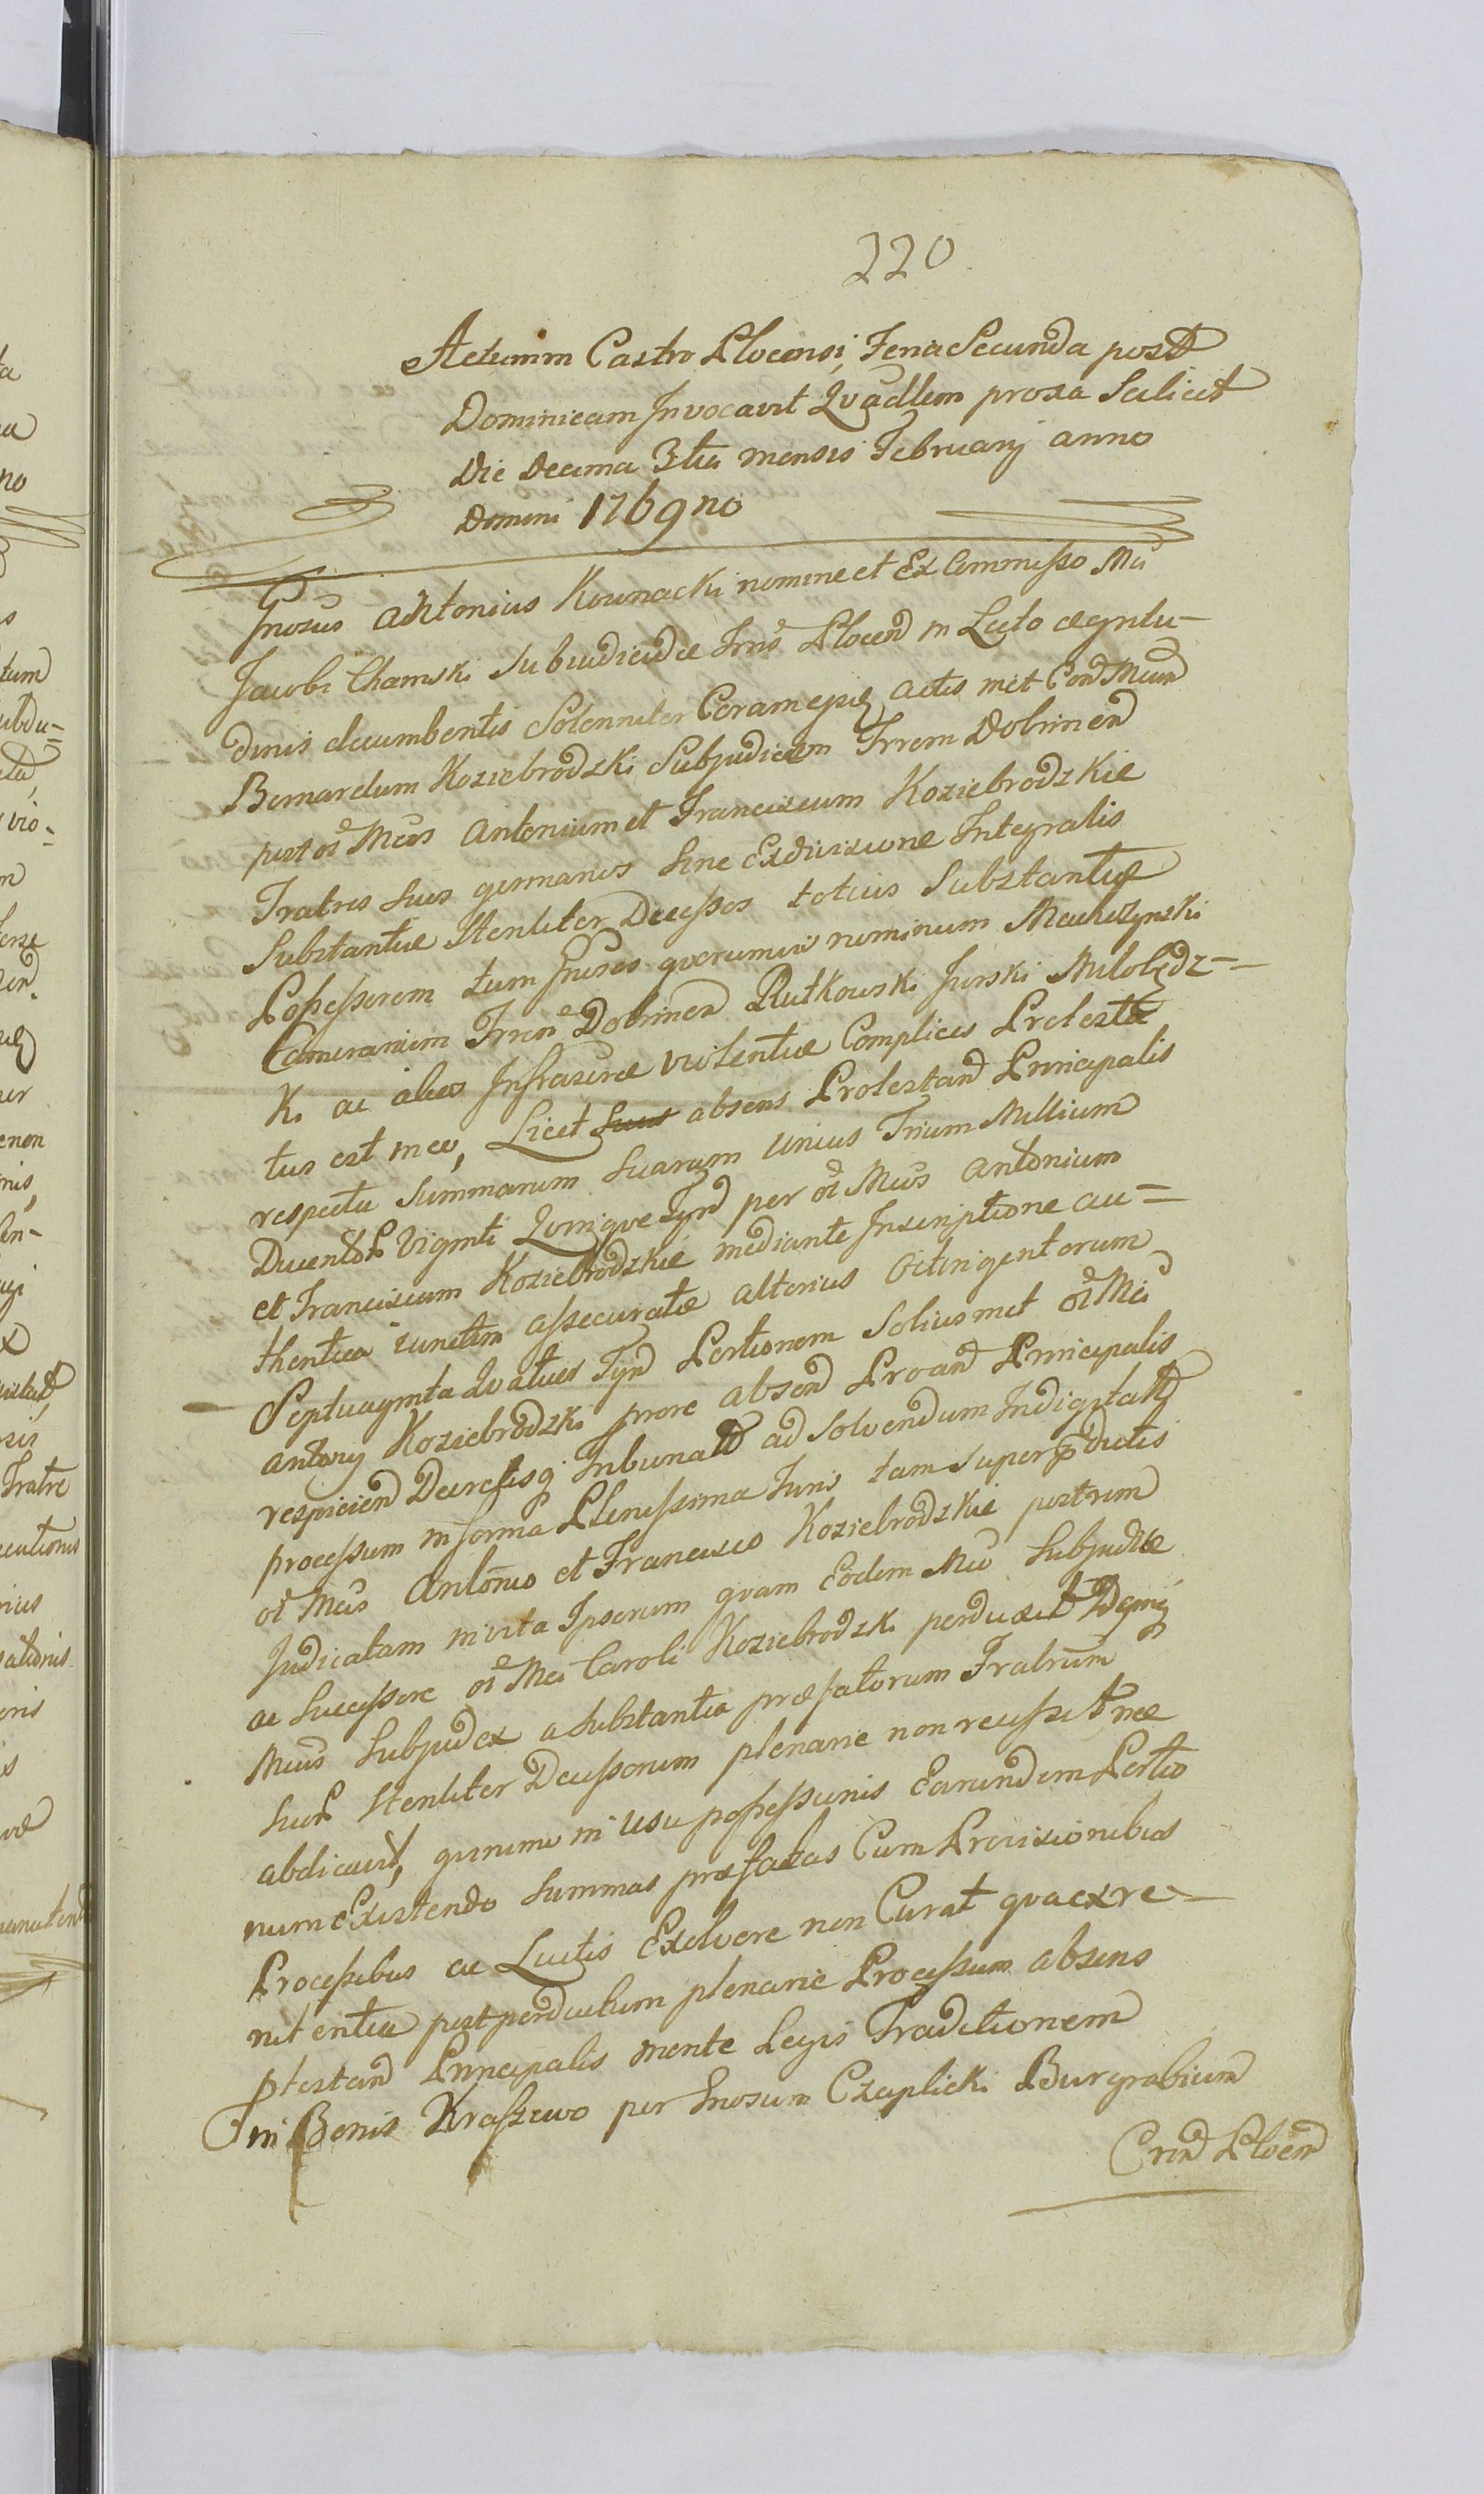 220
Actum in Castro Plocensi, Feria Secunda post
Dominicam Invocavit Qvadlem proxa Scilicet
Die Decima 3tia mensis Februarij anno
Domini 1769no
Gnosus Antonius Kownacki nomine et Ex Commisso Mci
Jacobi Chamski Subiudicis Trris Plocen in Lecto aegritu-
dinis decumbentis Solenniter Coram epis actis met Con Mcum
Bernardum Koziebrodzki Subjudicem Trrem Dobrinen
post oi Mcos Antonium et Franciscum Koziebrodzkie
Fratres suos germanos sine Exdivisione Integralis
Substantiae Sterliter Decessos totius Substantiae
Possessorem tum Gnosos qvorumvis nominum
Camerarium Trren Dobrinen Rutkowski Jurski Milobędz-
ki ac alios Infrascrae violentiae Complices Protesta
tus est in eo, Licet absens Protestan Principalis
respectu Summarum Suarum Unius Trium Millium
Ducentor Viginti Qvinqve Tynf per oi Mcos Antonium
et Franciscum Koziebrodzkie mediante Inscriptione au-
thentica iunctim assecuratae alterius Octingentorum
Septuaginta Qvatuor Tynf Portionem Solius met oi Mci
Antony Koziebrodzki prore absen Proan Principalis
respicien Decretisq Tribunal ad Solvendum Indigitat
processum in forma Plenissima Juris tam Super pdictis
oi Mcis Antonio et Francisco Koziebrodzkie post rem
Judicatam in vita Ipsorum qvam Eodem Mco Subjudice
ac Successore oi Mci Caroli Koziebrodzki perduxit
Mcus Subjudex a Substantia praefatorum Fratrum
Suor Sterliter Decessorum plenarie non recessit nec
abdicavit, qvinimo in usu possessionis Earundem Portio
num Existendo Summas praefatas Cum Provisionibus
Processibus ac Luctis Exolvere non Curat qva ex re-
nitentia post perductum plenarie Processum absens
ptestan Principalis mente Legis Traditionem
in Bonis Kraszewo per Gnosum Czaplicki Burgrabium
Cren Plocen